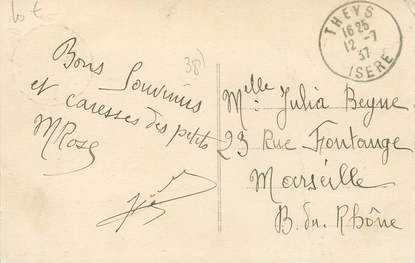 10 €
38)
THEYS
16 25
12 - 7
37
ISERE
Bons Souvenirs
et caresses des petits
M Rose
Melle Julia Beyne
23 Rue Fontange
Marseille
B. du Rhône